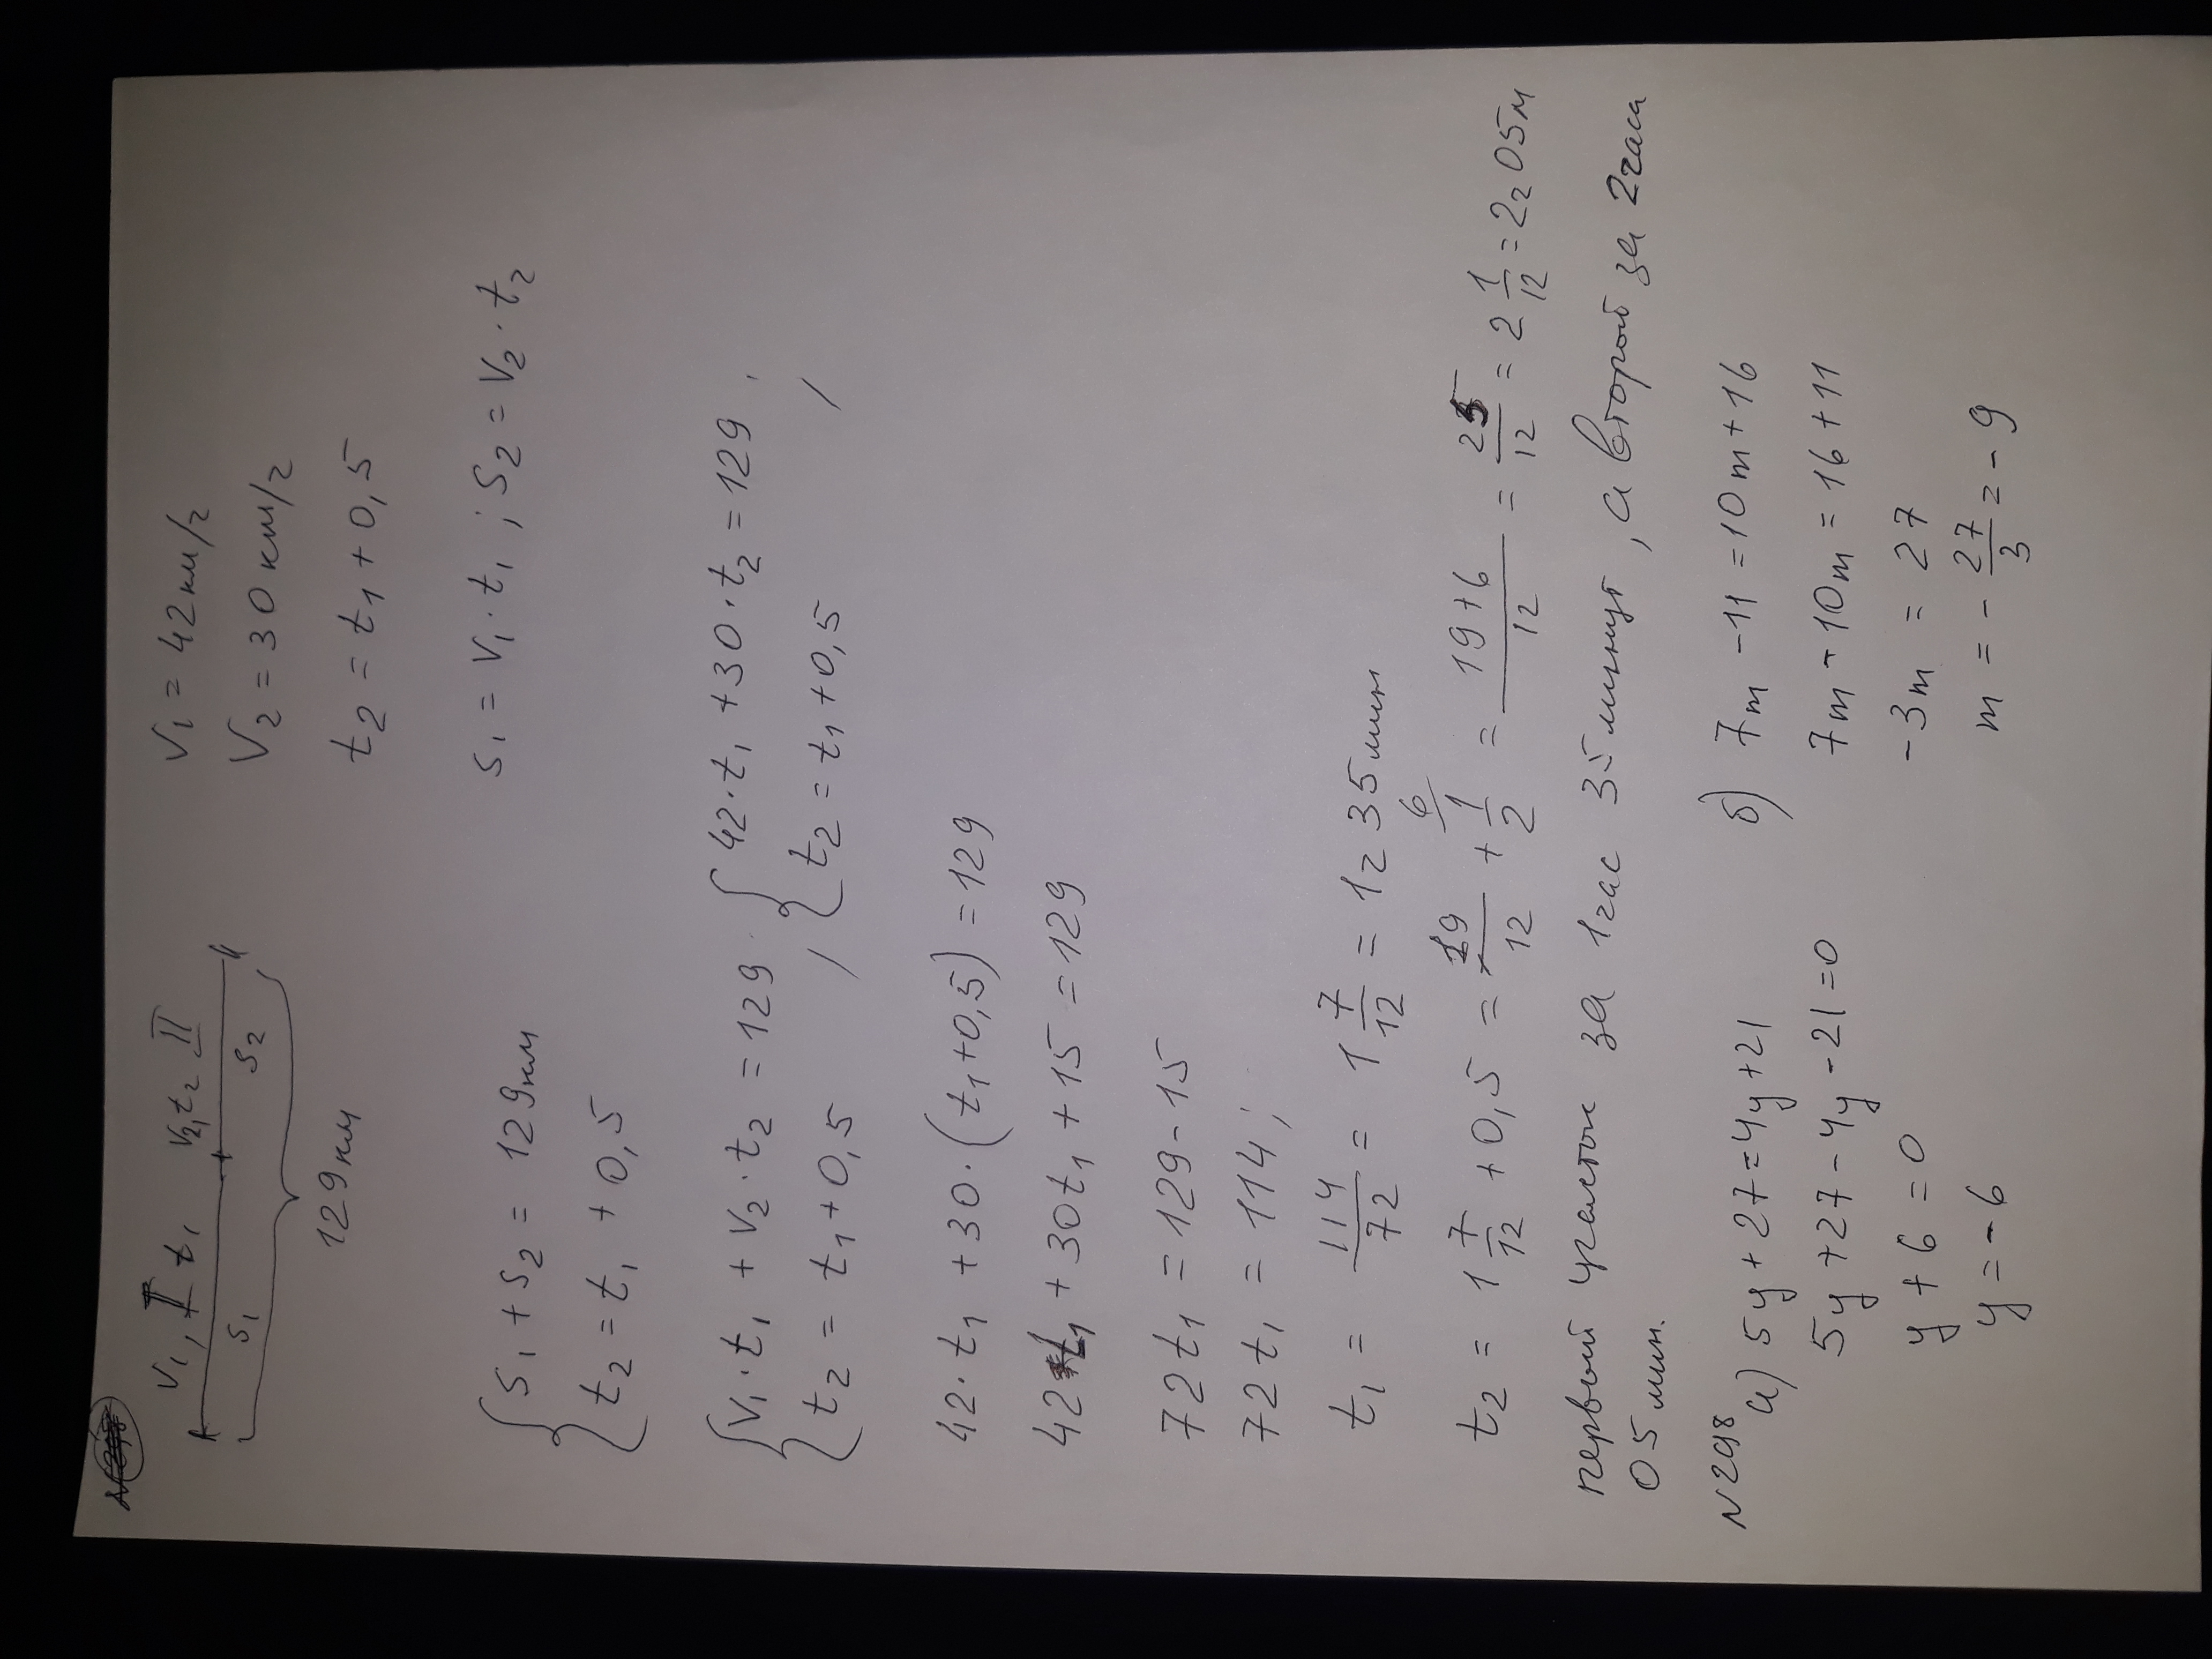 V₁, I t₁ V₂, t₂ II
S₁ S₂
129 км
V₁ = 42 км/г
V₂ = 30 км/г
t₂ = t₁ + 0,5
{ S₁ + S₂ = 129 км
{ t₂ = t₁ + 0,5
S₁ = V₁ · t₁ ; S₂ = V₂ · t₂
{ V₁ · t₁ + V₂ · t₂ = 129 ; { 42 · t₁ + 30 · t₂ = 129 ;
{ t₂ = t₁ + 0,5 { t₂ = t₁ + 0,5
42 · t₁ + 30 · (t₁ + 0,5) = 129
42 t₁ + 30t₁ + 15 = 129
72t₁ = 129 - 15
72t₁ = 114 ;
t₁ = 114/72 = 1 7/12 = 1г 35 мин
t₂ = 1 7/12 + 0,5 = 19/12 + 1/2 ⁶⁄ = (19+6)/12 = 25/12 = 2 1/12 = 2г 05м
первый участок за 1 час 35 минут, а второй за 2 часа
05 мин.
N 298
а) 5y + 27 = 4y + 21
5y + 27 - 4y - 21 = 0
y + 6 = 0
y = -6
б) 7m - 11 = 10m + 16
7m - 10m = 16 + 11
-3m = 27
m = - 27/3 = -9